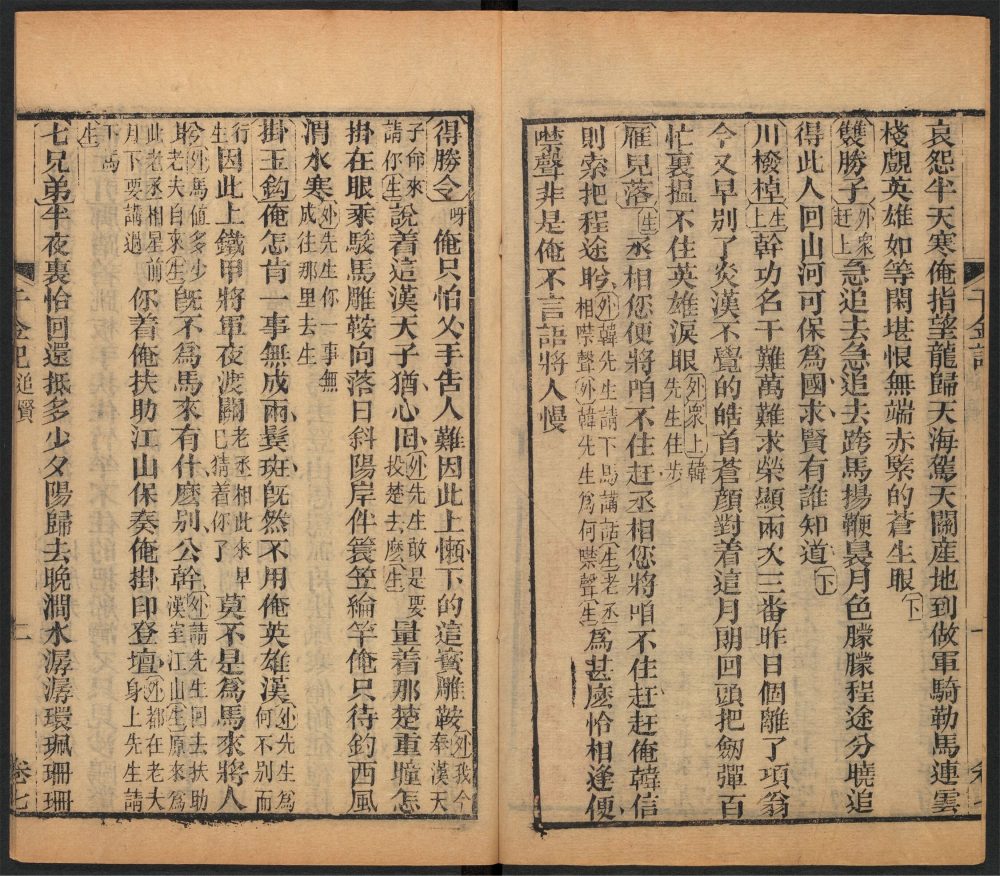 哀怨半天寒俺指望龍歸天海駕天關産地到做軍騎勒馬連雲
棧覷英雄如等閑堪恨無端赤緊的蒼生眼下
雙勝子外衆赶上急追去急追去跨馬揚鞭裊月色朦朦程途分曉追
得此人回山河可保爲國求賢有誰知道下
川撥棹生上幹功名千難萬難求榮顯兩次三番昨日個離了項翁
今又早别了炎漢不覺的皓首蒼顔對着這月朗回頭把劒彈百
忙裏揾不住英雄淚眼外衆上韓先生住步
雁兒落生丞相您便將咱不住赶丞相您將咱不住赶赶俺韓信
則索把程途盼外韓先生請下馬講話生老丞相噤聲外韓先生爲何噤聲生爲甚麼恰相逢便
噤聲非是俺不言語將人慢
千金記
得勝令呀俺只怕父手告人難因此上懶下的這寳雕鞍外我今奉漢天
子命來請你生說着這漢天子猶心困外先生敢是要投楚去麼生量着那楚重瞳怎
掛在眼乘駿馬雕鞍向落日斜陽岸伴簑笠綸竿俺只待釣西風
渭水寒外先生你一事無成往那里去生
掛玉鈎俺怎肯一事無成兩髩斑旣然不用俺英雄漢外先生爲何不别而
行生因此上鐵甲將軍夜渡關老丞相此來早巳猜着你了莫不是爲馬來將人
盼外馬値多少耶老夫自來生旣不爲馬來有什麼别公幹外請先生回去扶助漢室江山生原來爲
此老丞相星前月下要講過你着俺扶助江山保奏俺掛印登壇外都在老夫身上先生請
下馬生
七兄弟半夜裏恰回還抵多少夕陽歸去晚澗水潺潺環珮珊珊
千金記追賢
二
卷七